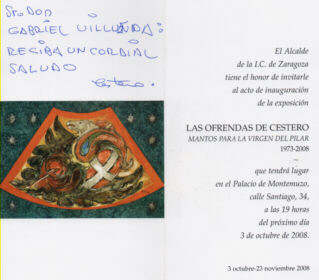 Sr. Don
GABRIEL VILLUNDA:
RECIBA UN CORDIAL
SALUDO
Cestero.
El Alcalde
de la I.C. de Zaragoza
tiene el honor de invitarle
al acto de inauguración
de la exposición
LAS OFRENDAS DE CESTERO
MANTOS PARA LA VIRGEN DEL PILAR
1973-2008
que tendrá lugar
en el Palacio de Montemuzo,
calle Santiago, 34,
a las 19 horas
del próximo día
3 de octubre de 2008.
3 octubre-23 noviembre 2008